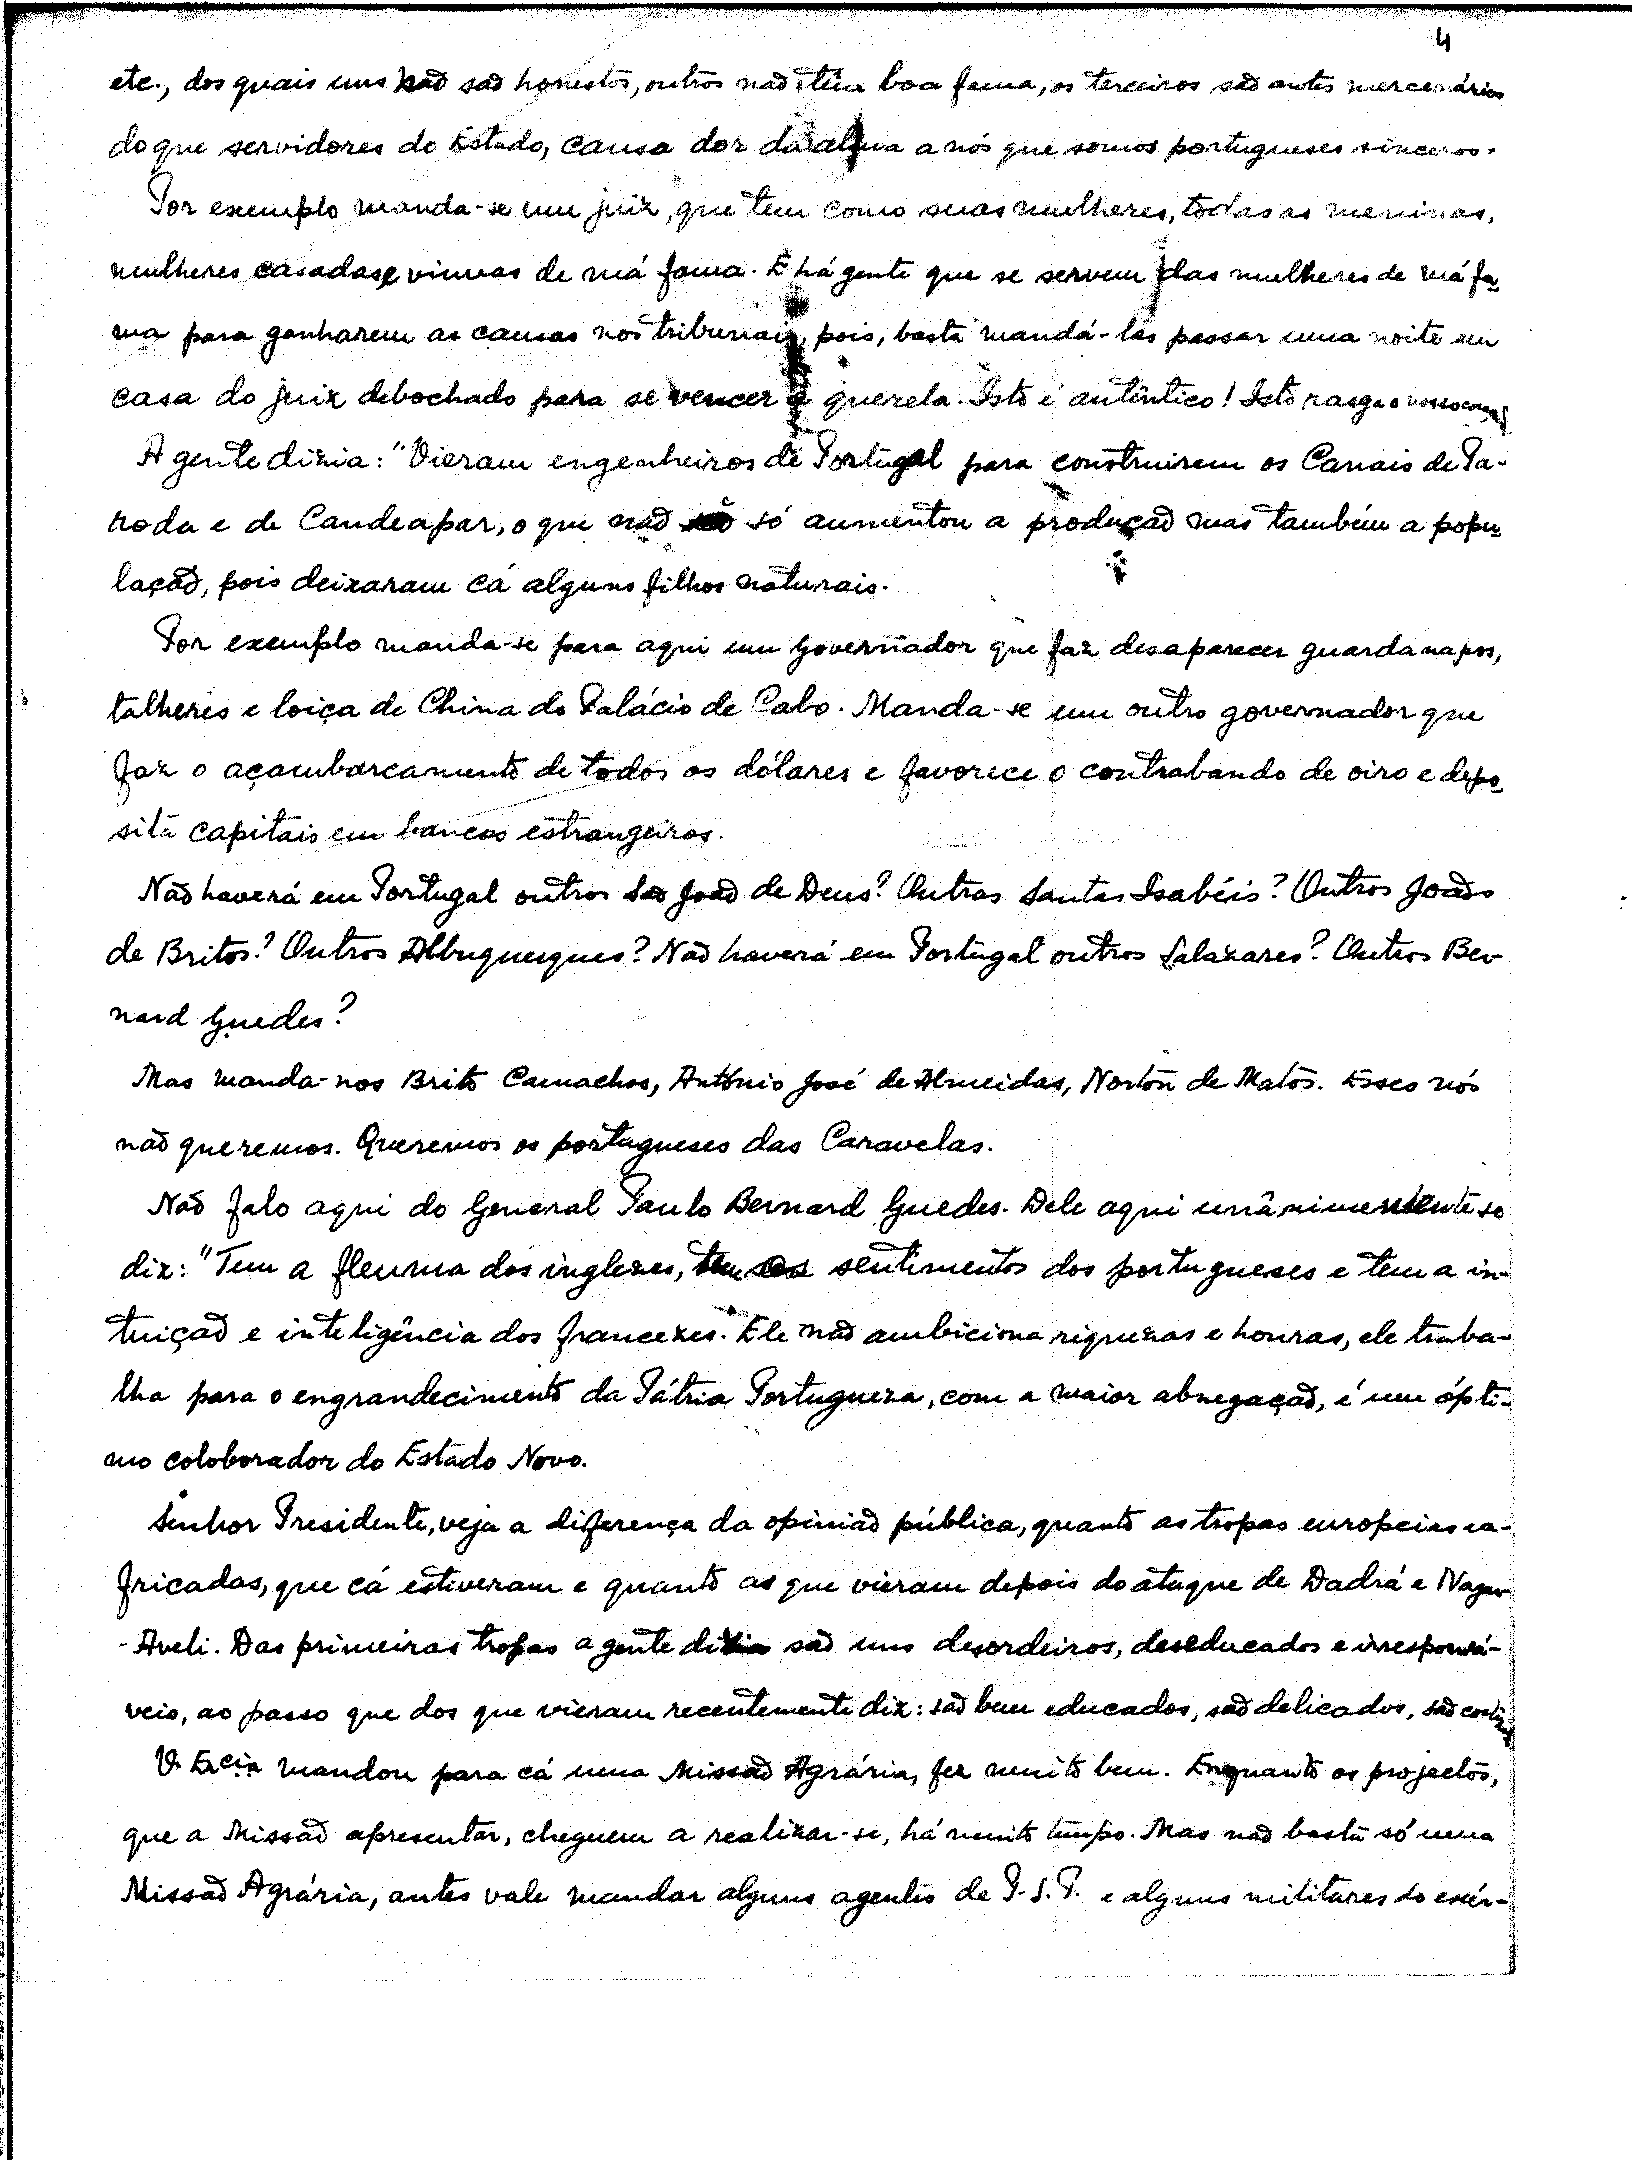 4
etc., dos quais uns não são honestos, outros não têm boa fama, os terceiros são antes mercenários
do que servidores do Estado, causa dor da alma a nós que somos portugueses sinceros.
Por exemplo manda-se um juiz, que tem como suas mulheres, todas as meninas,
mulheres casadas e viuvas de má fama. E há gente que se servem das mulheres de má fa-
ma para ganharem as causas nos tribunais, pois, basta mandá-las passar uma noite em
casa do juiz debochado para se vencer a querela. Isto é autêntico! Isto rasga o nosso
A gente dizia: "Vieram engenheiros de Portugal para construirem os Canais de Pa-
roda e de Candeapar, o que não só aumentou a produção mas também a popu-
lação, pois deixaram cá alguns filhos naturais.
Por exemplo manda-se para aqui um governador que faz desaparecer guardanapos,
talheres e loiça de China do Palácio de Cabo. Manda-se um outro governador que
faz o açambarcamento de todos os dólares e favorece o contrabando de oiro e depo-
sita capitais em bancos estrangeiros.
Não haverá em Portugal outros São João de Deus? Outras Santas Isabéis? Outros Joãos
de Britos? Outros Albuquerques? Não haverá em Portugal outros Salazares? Outros Ber-
nard Guedes?
Mas manda-nos Brito Camachos, António José de Almeidas, Norton de Matos. Esses nós
não queremos. Queremos os portugueses das Caravelas.
Não falo aqui do General Paulo Bernard Guedes. Dele aqui unânimemente se
diz: "Tem a fleuma dos inglezes, tem os sentimentos dos portugueses e tem a in-
tuição e inteligência dos francezes. Ele não ambiciona riquezas e honras, ele traba-
lha para o engrandecimento da Pátria Portugueza, com a maior abnegação, é um ópti-
mo coloborador do Estado Novo.
Senhor Presidente, veja a diferença da opinião pública, quanto as tropas europeias e a-
fricadas, que cá estiveram e quanto as que vieram depois do ataque de Dadrá e Nagar-
-Aveli. Das primeiras tropas a gente dizia são uns desordeiros, deseducados e irresponsá-
veis, ao passo que dos que vieram recentemente diz: são bem educados, são delicados, são
V. Excia mandou para cá uma Missão Agrária, fez muito bem. Enquanto os projectos,
que a Missão apresentar, cheguem a realizar-se, há muito tempo. Mas não basta só uma
Missão Agrária, antes vale mandar alguns agentes de P.S.P. e alguns militares do exér-